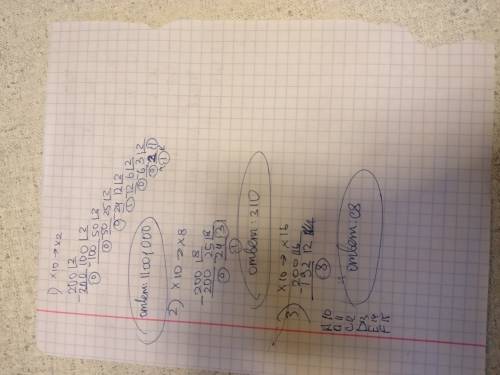 1) x10 → x2
200 | 2
200 100 | 2
0 100 50 | 2
0 50 25 | 2
0 24 12 | 2
1 12 6 | 2
0 6 3 | 2
0 2 1
1
ответ: 11001000
2) x10 → x8
200 | 8
200 25 | 8
0 24 3
1
ответ: 310
3) x10 → x16
200 | 16
192 12
8
ответ: C8
A 10
B 11
C 12
D 13
E 14
F 15